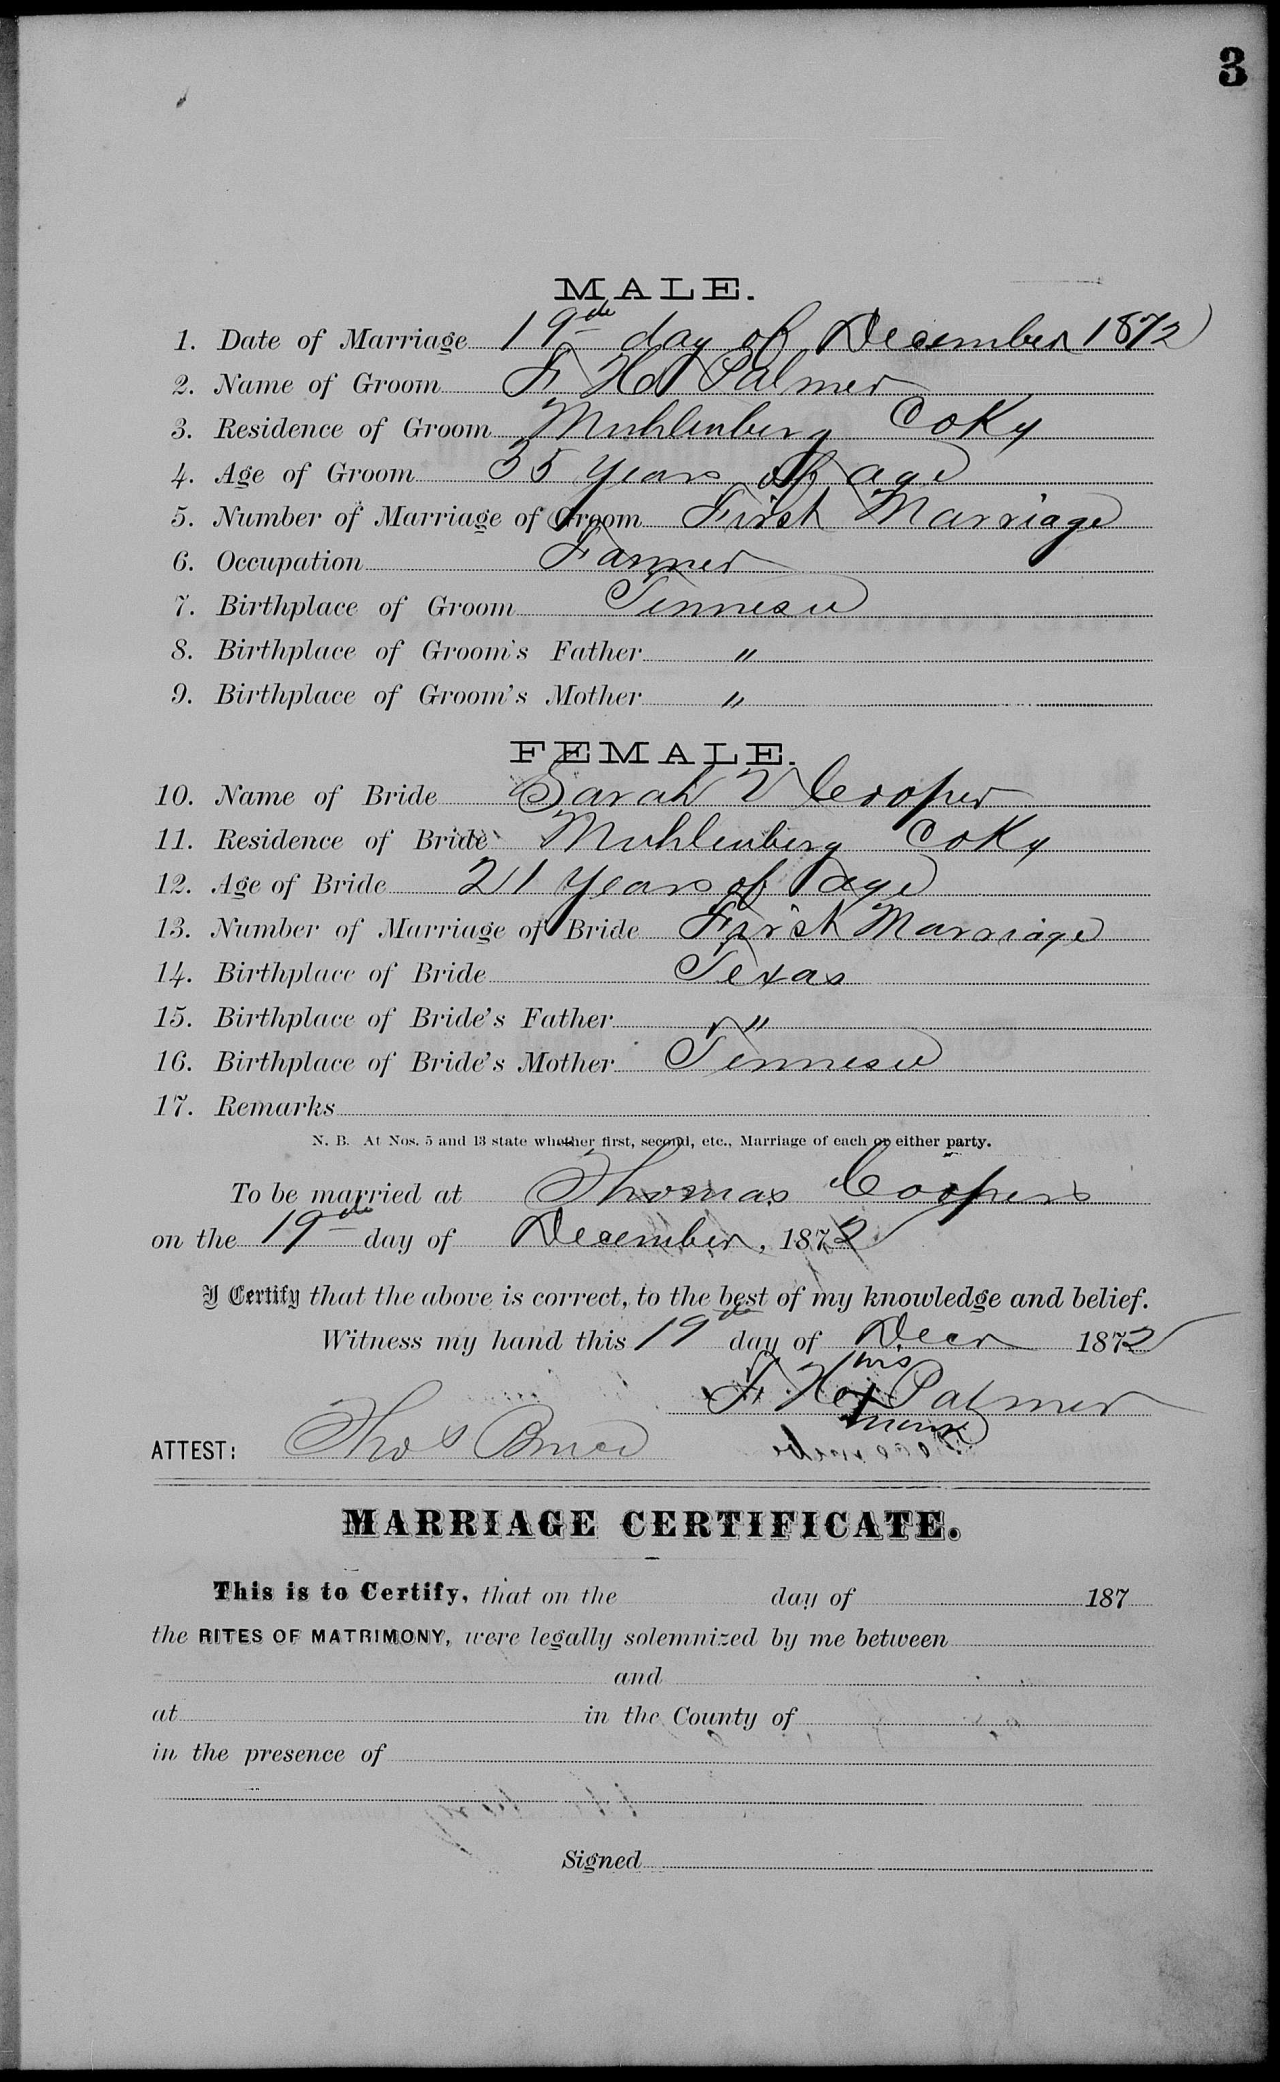 3
MALE.
1. Date of Marriage 19th day of December 1872
2. Name of Groom F. H. Palmer
3. Residence of Groom Muhlenberg Co Ky
4. Age of Groom 35 years of age
5. Number of Marriage of Groom First Marriage
6. Occupation Farmer
7. Birthplace of Groom Tennesee
8. Birthplace of Groom's Father "
9. Birthplace of Groom's Mother "
FEMALE.
10. Name of Bride Sarah V Cooper
11. Residence of Bride Muhlenberg Co Ky
12. Age of Bride 21 years of age
13. Number of Marriage of Bride First Marriage
14. Birthplace of Bride Texas
15. Birthplace of Bride's Father "
16. Birthplace of Bride's Mother Tennesee
17. Remarks
N. B. At Nos. 5 and 13 state whether first, second, etc., Marriage of each or either party.
To be married at Thomas Coopers
on the 19th day of December, 1872
I Certify that the above is correct, to the best of my knowledge and belief.
Witness my hand this 19th day of Decr 1872
his
F. H. x Palmer
mark
ATTEST: Thos Bruce
MARRIAGE CERTIFICATE.
This is to Certify, that on the day of 187
the RITES OF MATRIMONY, were legally solemnized by me between
and
at in the County of
in the presence of
Signed